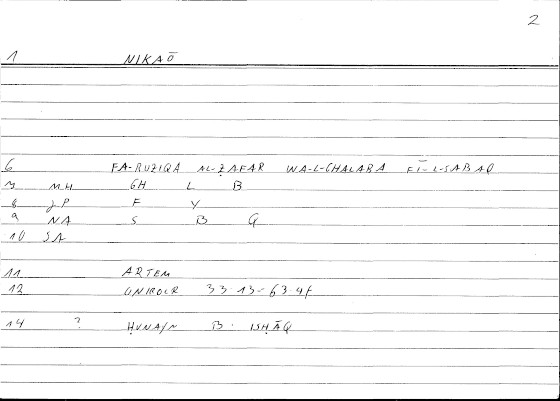 2
1 NIKAŌ
6 FA-RUZIQA AL-ẒAFAR WA-L-GHALABA FĪ-L-SABAQ
7 MU GH L B
8 JP F Y
9 NA S B Q
10 SA
11 ARTEM
12 ONIROCR 33·13-63·4f
14 ? ḤUNAYN B. ISḤĀQ